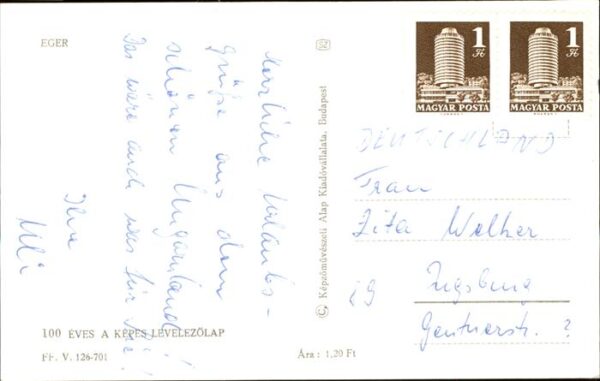 EGER
Herzliche Urlaubs-
grüße aus dem
schönen Ungarland!
Das wäre auch was für Sie!
Ihre
Uli
100 ÉVES A KÉPES LEVELEZŐLAP
FF. V. 126-701
Ára : 1,20 Ft
© Képzőművészeti Alap Kiadóvállalata, Budapest
1 Ft
MAGYAR POSTA
1 Ft
MAGYAR POSTA
DEUTSCHLAND
Frau
Zita Welker
89 Augsburg
Gentnerstr. 2